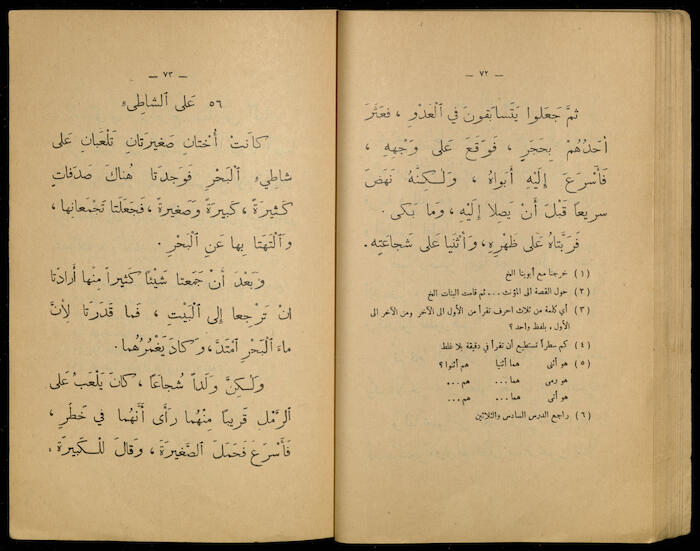 — ٧٢ —
ثمَّ جَعَلوا يَتَسابَقونَ في ٱلْعَدْوِ ، فَعَثَرَ
أَحَدُهُمْ بِحَجَرٍ ، فَوَقَعَ عَلى وَجْهِهِ ،
فَأَسْرَعَ إلَيْهِ أَبَواهُ ، وَلٰكِنَّهُ نَهَضَ
سَريعاً قَبْلَ أَنْ يَصِلا إلَيْهِ ، وَما بَكى .
فَرَبَّتاهُ عَلى ظَهْرِهِ، وَأَثْنَيا عَلى شَجاعَتِهِ .
(١) خرجنا مع أبوينا الخ
(٢) حول القصة الى المؤنث ... ثم قامت البنات الخ
(٣) أي كلمة من ثلاث احرف تقرأ من الأول الى الآخر ومن الآخر الى
الأول ، بلفظ واحد ؟
(٤) كم سطراً تستطيع أن تقرأ في دقيقة بلا غلط
(٥) هو أثنى هما أثنيا هم أثنوا ؟
هو رمى هما ... هم ...
هو أتى هما ... هم ...
(٦) راجع الدرس السادس والثلاثين
— ٧٣ —
٥٦ عَلى ٱلشاطِىءِ
كانَتْ أُخْتانِ صَغيرَتانِ تَلْعَبانِ عَلى
شاطِىءِ ٱلْبَحْرِ فَوَجَدَتا هُناكَ صَدَفاتٍ
كَثيرَةً ، كَبيرَةً وَصَغيرَةً ، فَجَعَلَتا تَجْمَعانِها ،
وَٱلْتَهَتا بِها عَنِ ٱلْبَحْرِ .
وَبَعْدَ أنْ جَمَعَتا شَيْئاً كَثيراً مِنْها أرادَتا
انْ تَرْجِعا إلى ٱلْبَيْتِ ، فَما قَدَرَتا لأنَّ
ماءَ ٱلْبَحْرِ ٱمْتَدَّ ، وَكادَ يَغْمُرُهُما .
وَلٰكِنَّ وَلَداً شُجاعاً ، كانَ يَلْعَبُ عَلى
ٱلرَّمْلِ قَريباً مِنْهُما رَأى أَنَّهُما في خَطَرٍ ،
فَأَسْرَعَ فَحَمَلَ ٱلصَّغيرَةَ ، وَقالَ لِلْكَبيرَةِ :